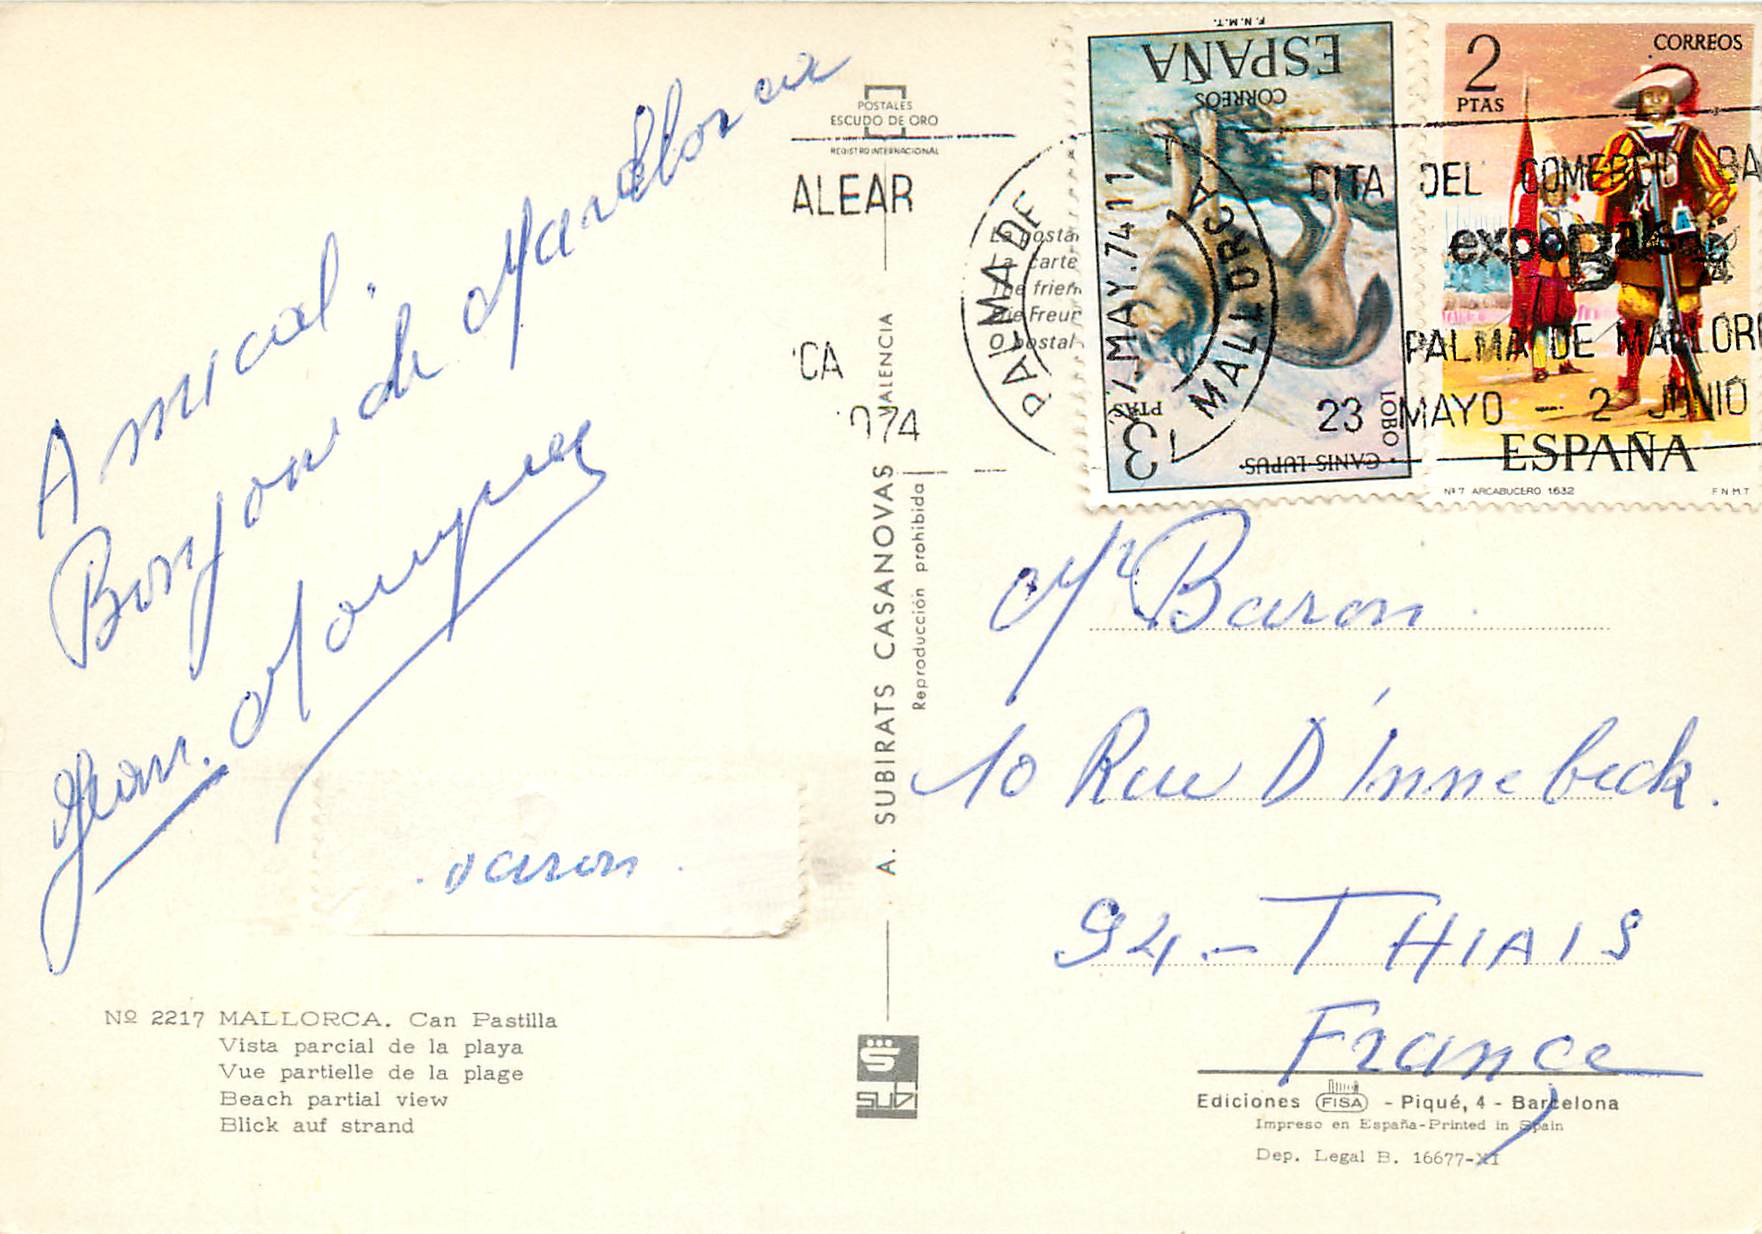 Amical.
Bonjour de Mardlorca
Jean.
varon.
Nº 2217 MALLORCA. Can Pastilla
Vista parcial de la playa
Vue partielle de la plage
Beach partial view
Blick auf strand
POSTALES
ESCUDO DE ORO
REGISTRO INTERNACIONAL
ALEAR
CA
974
A. SUBIRATS CASANOVAS VALENCIA
Reproducción prohibida
SUBI
La postal
La carte
The frien
Die Freun
O postal
PALMA DE MALLORCA
7.MAY.74 11
F.N.M.T.
ESPAÑA
CORREOS
3 PTAS
LOBO
CANIS LUPUS
2
PTAS
CORREOS
ESPAÑA
Nº 7 ARCABUCERO 1632
F N M T
CITA DEL COMERCIO BA
expo
PALMA DE MALLOR
23 MAYO - 2 JUNIO
Mr Baron.
10 Rue D'Innebeck.
94 - THIAIS
France
Ediciones FISA - Piqué, 4 - Barcelona
Impreso en España-Printed in Spain
Dep. Legal B. 16677-XI